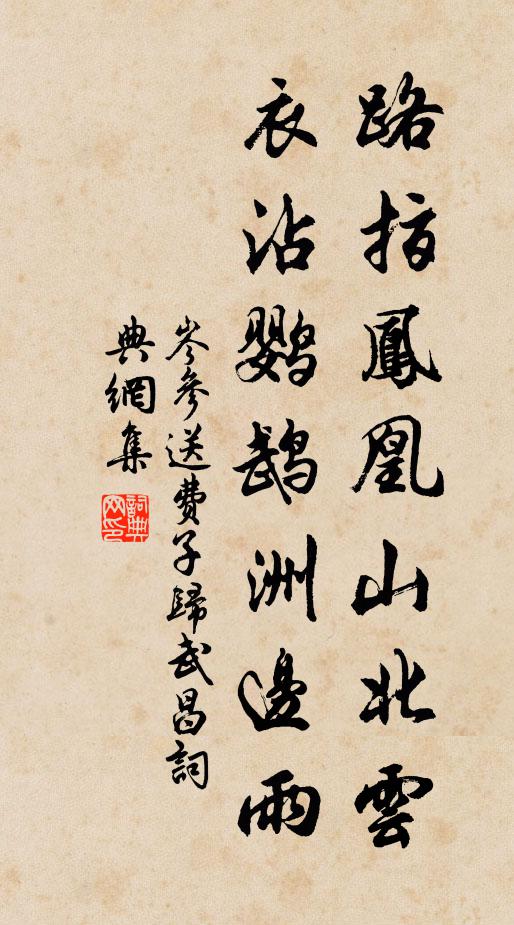 路指鳳凰山北雲
衣沾鸚鵡洲邊雨
岑參送費子歸武昌詞
典網集
詞典网印